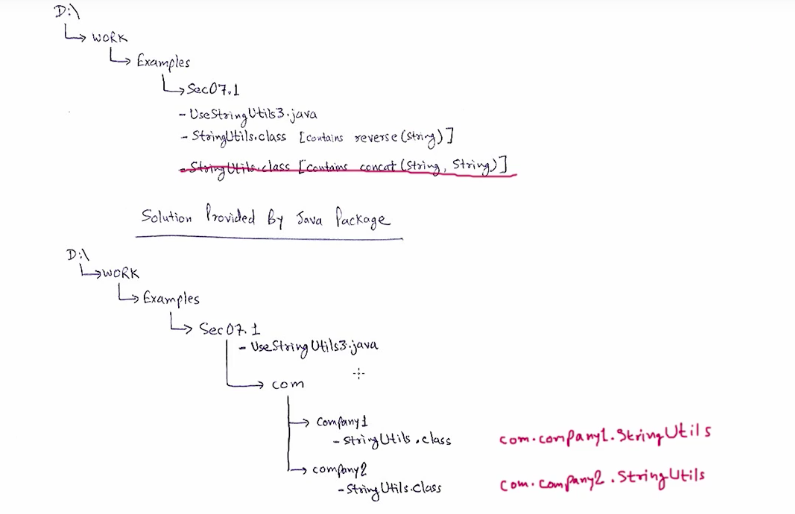 D:\
WORK
Examples
Sec07.1
- UseStringUtils3.java
- StringUtils.class [contains reverse(String)]
- StringUtils.class [contains concat(String, String)]
Solution Provided By Java Package
D:\
WORK
Examples
Sec07.1
- UseStringUtils3.java
com
company1
- StringUtils.class com.company1.StringUtils
company2
- StringUtils.class com.company2.StringUtils